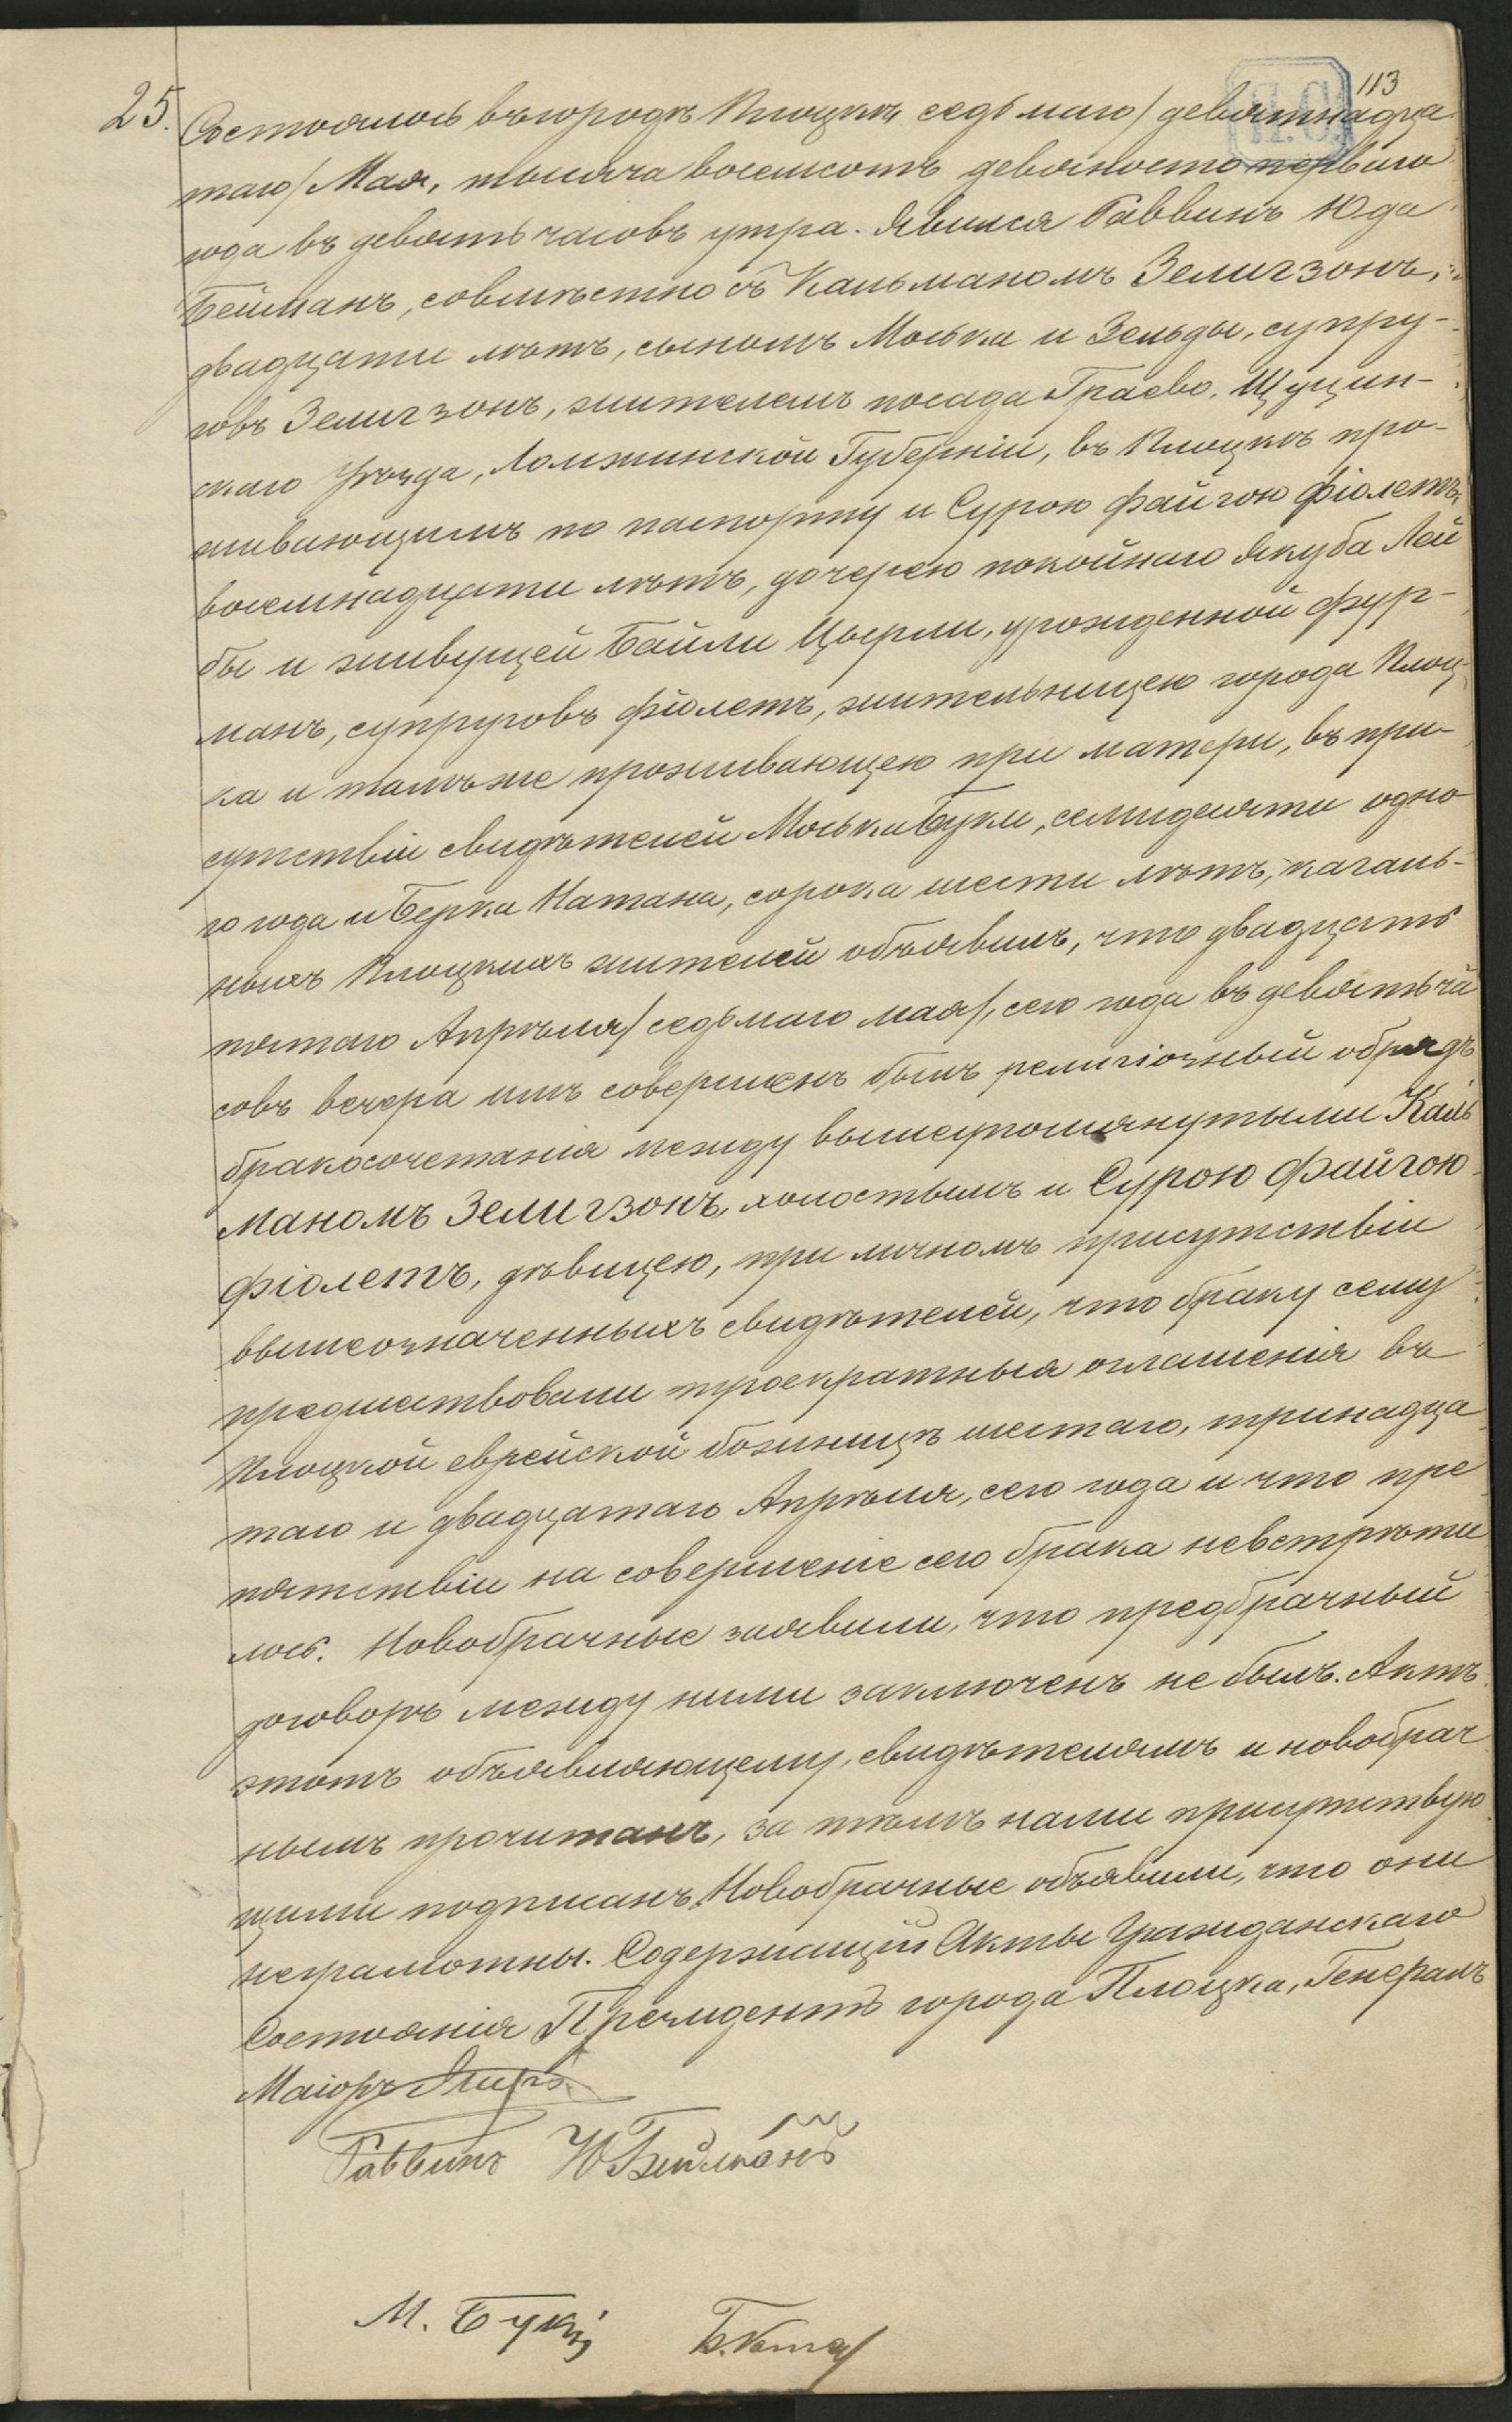 113
25. Состоялось въ городѣ Плоцкѣ седьмаго /девятнадца
таго/ Мая, тысяча восемсотъ девяносто перваго
года въ девять часовъ утра. Явился Раввинъ Юда
Бейманъ, совмѣстно съ Кальманомъ Зелигзонъ,
двадцати лѣтъ, сыномъ Моська и Зельды, супру-
говъ Зелигзонъ, жителемъ посада Граево, Щучин-
скаго Уѣзда, Ломжинской Губерніи, въ Плоцкѣ про-
живающимъ по паспорту и Сурою Файгою Фіолетъ,
восемнадцати лѣтъ, дочерею покойнаго Якуба Лей
бы и живущей Байли Цырли, урожденной Фур-
манъ, супруговъ Фіолетъ, жительницею города Плоц-
ка и тамъ же проживающею при матери, въ при-
сутствіи свидѣтелей Моська Букм, семидесяти одно
го года и Берка Натана, сорока шести лѣтъ, кагаль-
ныхъ Плоцкихъ жителей объявилъ, что двадцать
пятаго Апрѣля /седьмаго мая/, сего года въ девять ча
совъ вечера имъ совершенъ былъ религіозный обрядъ
бракосочетанія между вышеупомянутыми Каль
маномъ Зелигзонъ, холостымъ и Сурою Файгою
Фіолетъ, дѣвицею, при личномъ присутствіи
вышеозначенныхъ свидѣтелей, что браку сему
предшествовали троекратныя оглашенія въ
Плоцкой еврейской божницѣ шестаго, тринадца
таго и двадцатаго Апрѣля, сего года и что пре
пятствіи на совершеніе сего брака невстрѣти
лось. Новобрачные заявили, что предбрачный
договоръ между ними заключенъ не былъ. Актъ
этотъ объявляющему, свидѣтелямъ и новобрач
нымъ прочитанъ, за тѣмъ нами присутствую
щими подписанъ. Новобрачные объявили, что они
неграмотны. Содержащій Акты Гражданскаго
Состоянія Президентъ города Плоцка, Генералъ
Маіоръ
Раввинъ Ю Бейманъ
М. Букм